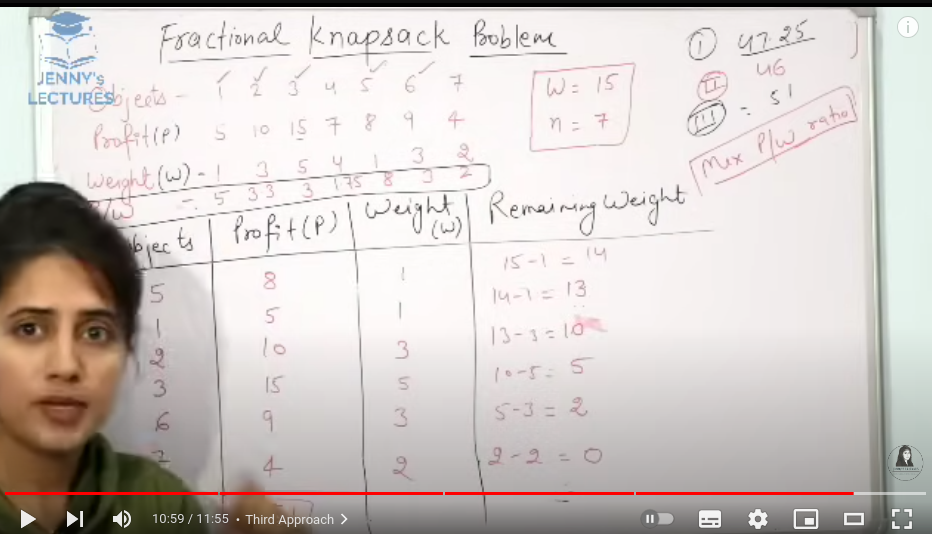 Fractional Knapsack Problem
JENNY's
LECTURES
Objects - 1 2 3 4 5 6 7
Profit(P) 5 10 15 7 8 9 4
Weight(W) - 1 3 5 4 1 3 2
P/W - 5 3.3 3 1.75 8 3 2
W = 15
n = 7
I 47.25
II 46
III = 51
Max P/W ratio
Objects Profit(P) Weight(W) Remaining Weight
5 8 1 15-1 = 14
1 5 1 14-1 = 13
2 10 3 13-3 = 10
3 15 5 10-5 = 5
6 9 3 5-3 = 2
7 4 2 2-2 = 0
10:59 / 11:55 • Third Approach >